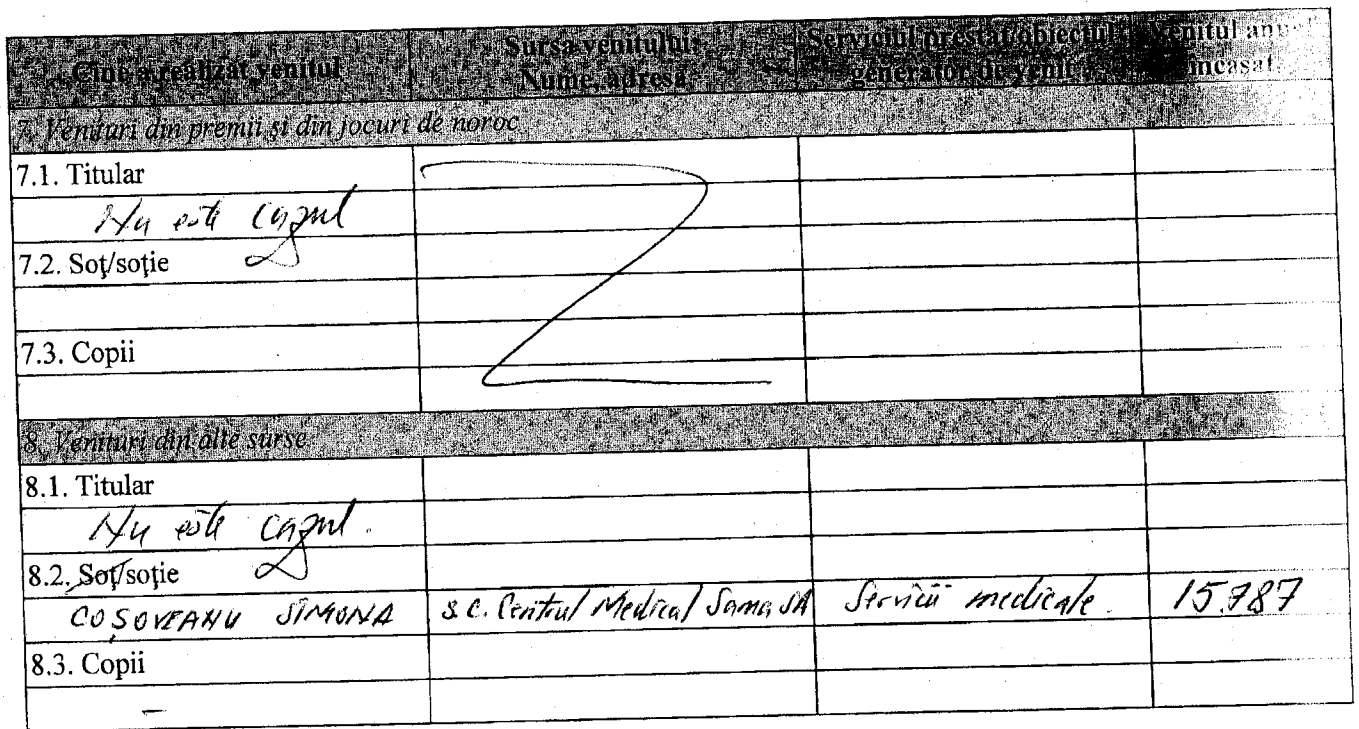 Cine a realizat venitul Sursa venitului: Serviciul prestat/obiectul Venitul anual
Nume, adresa generator de venit încasat
7. Venituri din premii și din jocuri de noroc
7.1. Titular
Nu este cazul
7.2. Soţ/soţie
7.3. Copii
8. Venituri din alte surse
8.1. Titular
Nu este cazul.
8.2. Soţ/soţie
COȘOVEANU SIMONA S.C. Centrul Medical Sama SA Servicii medicale. 15.787
8.3. Copii
–